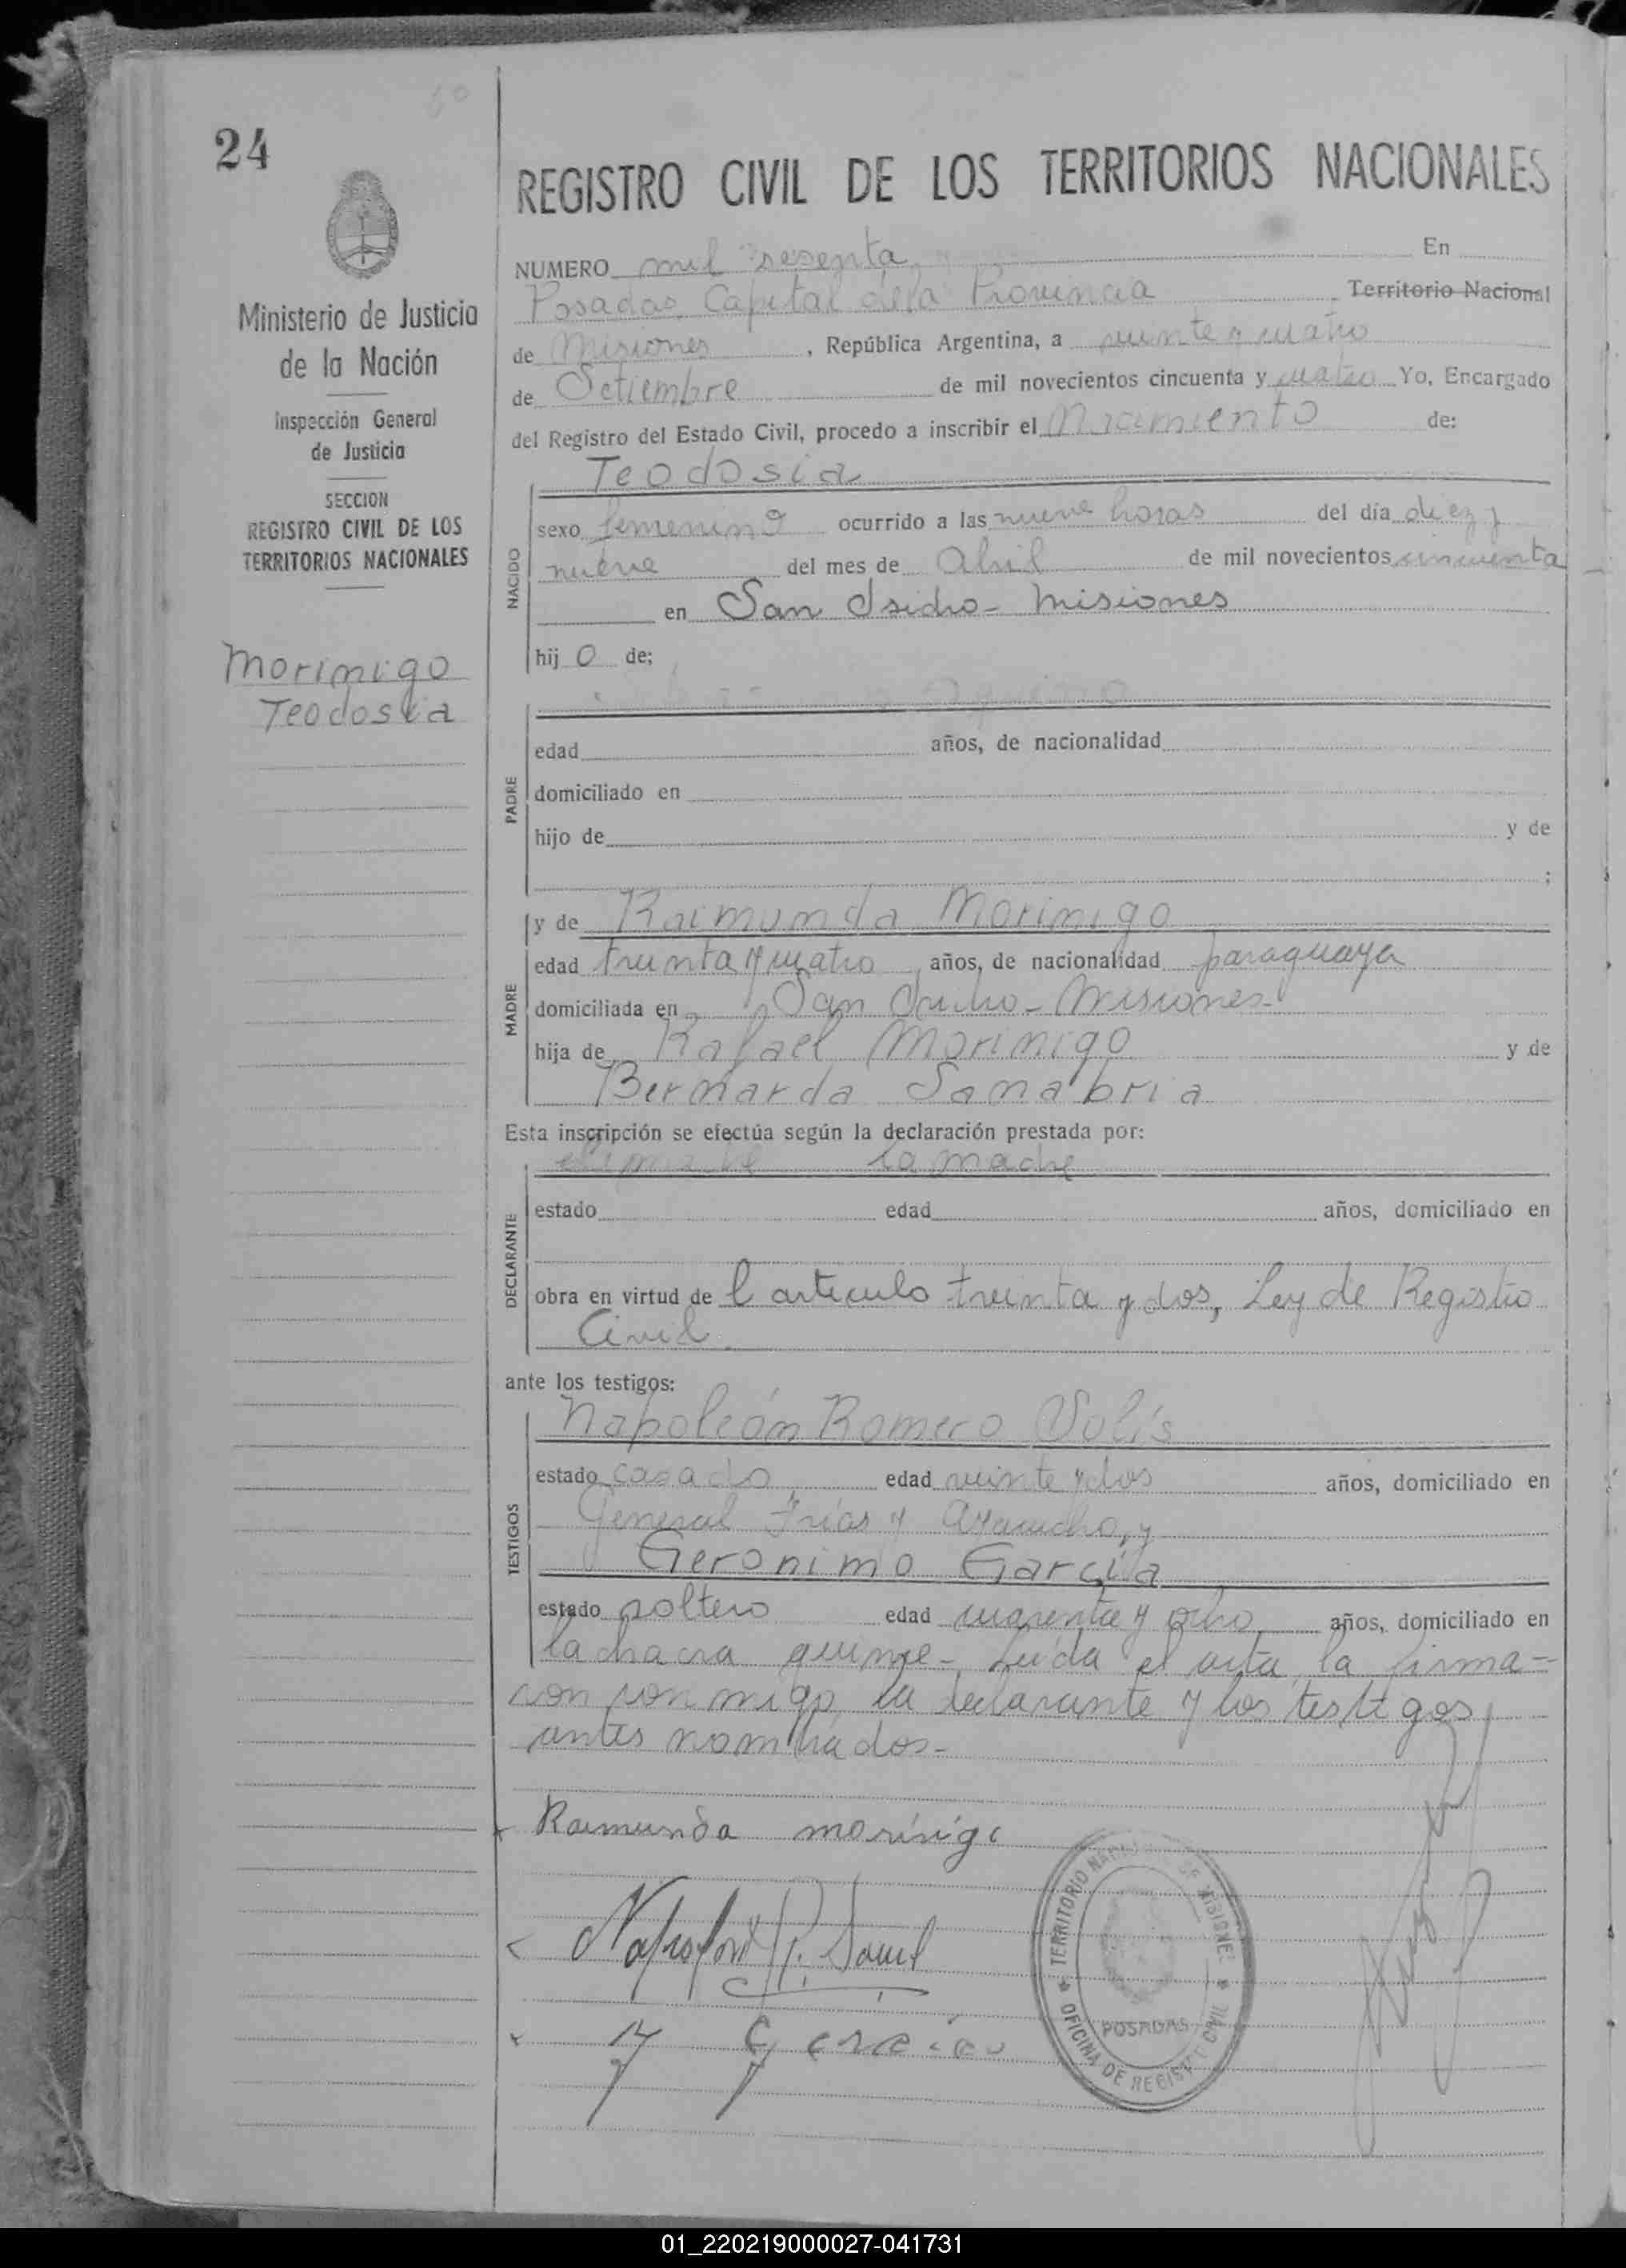 24
Ministerio de Justicia
de la Nación
Inspección General
de Justicia
SECCION
REGISTRO CIVIL DE LOS
TERRITORIOS NACIONALES
Morinigo
Teodosia
REGISTRO CIVIL DE LOS TERRITORIOS NACIONALES
NUMERO mil sesenta En
Posadas, Capital de la Provincia Territorio Nacional
de Misiones, República Argentina, a veinte y cuatro
de Setiembre de mil novecientos cincuenta y cuatro Yo, Encargado
del Registro del Estado Civil, procedo a inscribir el Nacimiento de:
Teodosia
NACIDO
sexo femenino ocurrido a las nueve horas del día diez y
nueve del mes de Abril de mil novecientos cincuenta
en San Isidro - Misiones
hij o de;
PADRE
edad años, de nacionalidad
domiciliado en
hijo de y de
;
y de Raimunda Morinigo
MADRE
edad treinta y cuatro, años, de nacionalidad paraguaya
domiciliada en San Isidro - Misiones-
hija de Rafael Morinigo y de
Bernarda Sanabria
Esta inscripción se efectúa según la declaración prestada por:
la madre
DECLARANTE
estado edad años, domiciliado en
obra en virtud de l articulo treinta y dos, Ley de Registro
Civil.
ante los testigos:
Napoleón Romero Solís
TESTIGOS
estado casado, edad veinte y dos años, domiciliado en
General Frías y Ayacucho, y
Geronimo García
estado soltero edad cuarenta y ocho, años, domiciliado en
la chacra quince-, Leída el acta, la firma=
ron conmigo, la declarante y los testigos
antes nombrados-
Raimunda morínigo
TERRITORIO NACIONAL DE MISIONES
OFICINA DE REGISTRO CIVIL
POSADAS
01_220219000027-041731